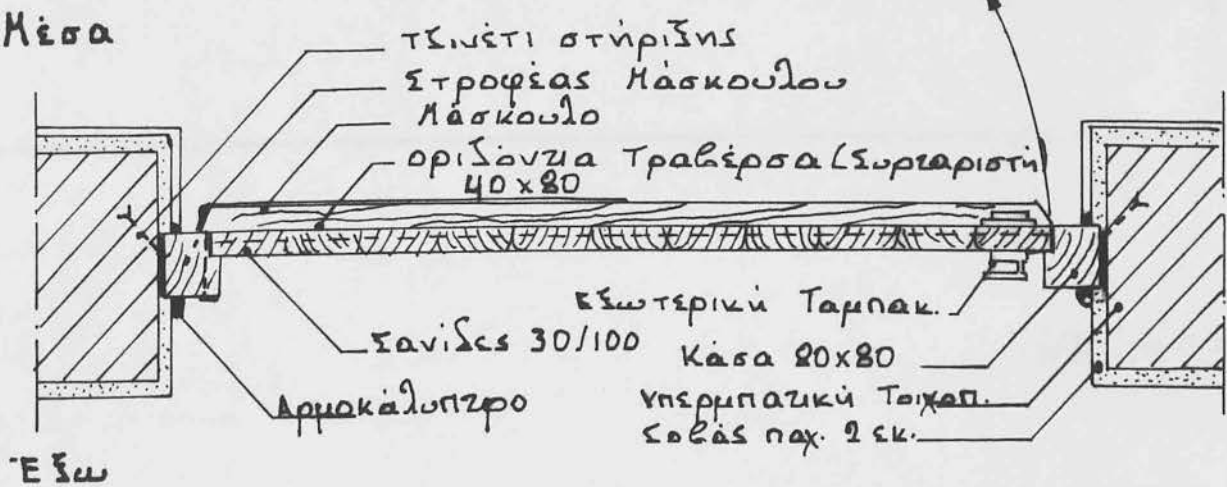 Μέσα
τζινέτι στήριξης
Στροφέας Μάσκουλου
Μάσκουλο
οριζόντια Τραβέρσα (Συρταριστή)
40 x 80
Εξωτερική Ταμπακ.
Σανίδες 30/100
Κάσα 80x80
Αρμοκάλυπτρο
υπερμπατική Τοιχοπ.
Σοβάς παχ. 2 εκ.
Έξω